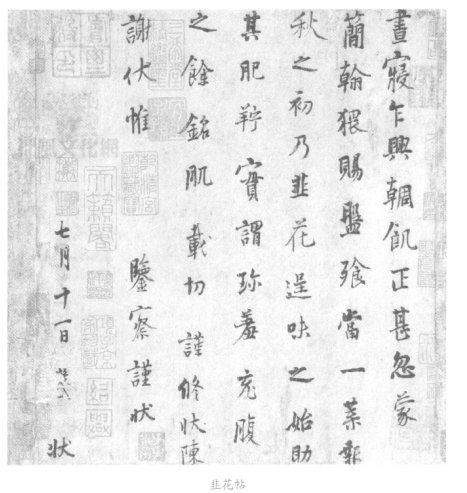 晝寢乍興輖飢正甚忽蒙
簡翰猥賜盤飧當一葉報
秋之初乃韭花逞味之始助
其肥羜實謂珍羞充腹
之餘銘肌載切謹修狀陳
謝伏惟鑒察謹狀
七月十一日狀
韭花帖